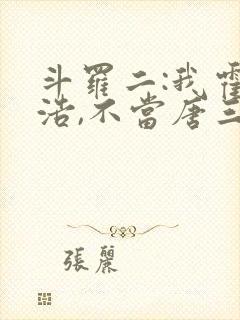 斗羅二:我霍
浩,不當唐三
張麗